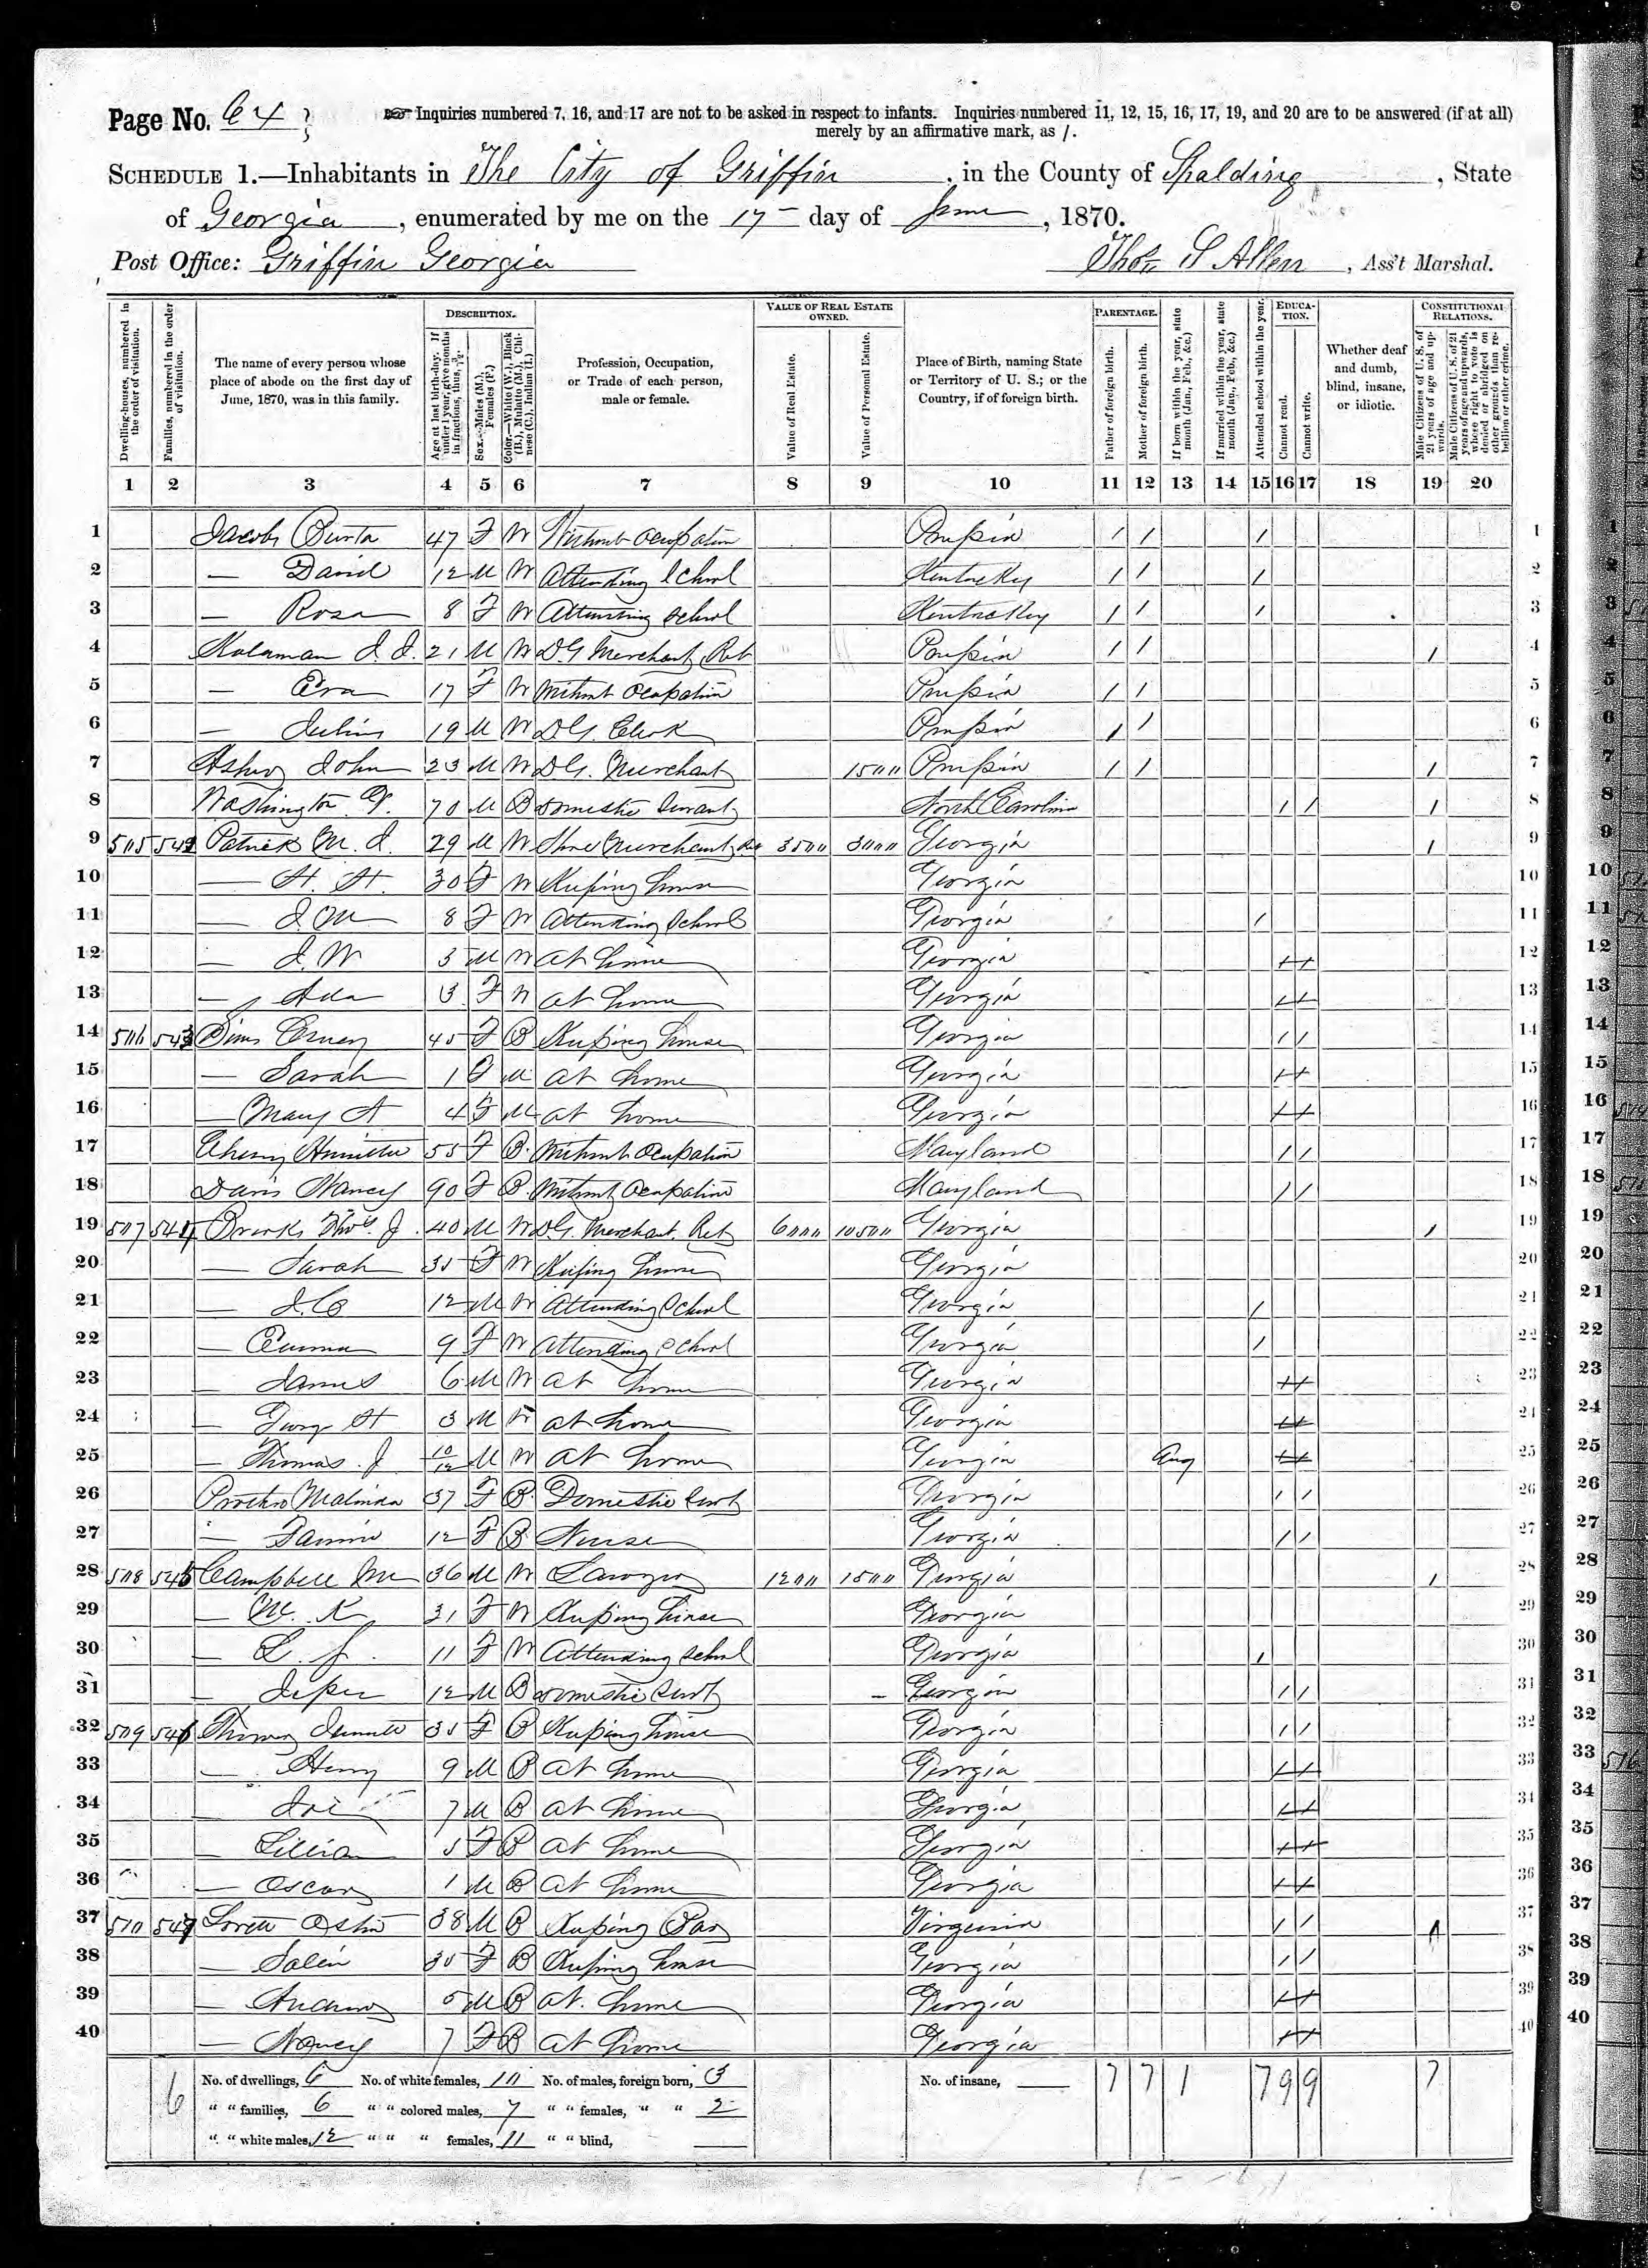 Page No. 64
Inquiries numbered 7, 16, and 17 are not to be asked in respect to infants. Inquiries numbered 11, 12, 15, 16, 17, 19, and 20 are to be answered (if at all)
merely by an affirmative mark, as /.
SCHEDULE 1.—Inhabitants in The City of Griffin, in the County of Spalding, State
of Georgia, enumerated by me on the 17 day of June, 1870.
Post Office: Griffin Georgia
Thos S Allen, Ass't Marshal.
Dwelling-houses, numbered in the order of visitation.
Families, numbered in the order of visitation.
The name of every person whose place of abode on the first day of June, 1870, was in this family.
DESCRIPTION.
Age at last birth-day. If under 1 year, give months in fractions, thus, 3/12.
Sex.—Males (M.), Females (F.)
Color.—White (W.), Black (B.), Mulatto (M.), Chinese (C.), Indian (I.)
Profession, Occupation, or Trade of each person, male or female.
VALUE OF REAL ESTATE OWNED.
Value of Real Estate.
Value of Personal Estate.
Place of Birth, naming State or Territory of U. S.; or the Country, if of foreign birth.
PARENTAGE.
Father of foreign birth.
Mother of foreign birth.
If born within the year, state month (Jan., Feb., &c.)
If married within the year, state month (Jan., Feb., &c.)
Attended school within the year.
EDUCATION.
Cannot read.
Cannot write.
Whether deaf and dumb, blind, insane, or idiotic.
CONSTITUTIONAL RELATIONS.
Male Citizens of U. S. of 21 years of age and upwards.
Male Citizens of U. S. of 21 years of age and upwards, whose right to vote is denied or abridged on other grounds than rebellion or other crime.
1 2 3 4 5 6 7 8 9 10 11 12 13 14 15 16 17 18 19 20
1 Jacobs 47 F W Without Ocupation / / / 1
2 — David 12 M W Attending School Kentucky / / / 2
3 — Rosa 8 F W Attending School Kentuckey / / / 3
4 21 M W D.G Merchant Ret / / / 4
5 — Eva 17 F W Without Ocupation / / 5
6 — 19 M W D.G. Clerk / / 6
7 John 23 M W D.G. Merchant 1500 / / / 7
8 Washington 70 M B Domestic Servant North Carolina / / / 8
9 505 542 Patrick M. J. 29 M W Merchant 3500 3000 Georgia / 9
10 — H. H. 30 F W Keeping house Georgia 10
11 — J M 8 F W Attending School Georgia / 11
12 — J. W 5 M W at home Georgia 12
13 — Ada 3 F W at home Georgia 13
14 506 543 Sims 45 F B Keeping house Georgia / / 14
15 — Sarah 1 F M at home Georgia 15
16 — Mary A 4 F M at home Georgia 16
17 55 F B. Without Ocupation Maryland / / 17
18 Davis Nancy 90 F B. Without Ocupation Maryland / / 18
19 507 544 Brooks Thos. J. 40 M W D.G. Merchant. Ret 6000 10500 Georgia / 19
20 — Sarah 35 F W Keeping house Georgia 20
21 — 12 M W Attending School Georgia / 21
22 — Emma 9 F W Attending School Georgia / 22
23 — James 6 M W at home Georgia 23
24 — George H 3 M W at home Georgia 24
25 — Thomas. J 10/12 M W at home Georgia Aug 25
26 Prothro Malinda 37 F B. Domestic Servt Georgia / / 26
27 — Fannie 12 F B Nurse Georgia / / 27
28 508 545 Campbell 36 M W Lawyer 1200 1500 Georgia / 28
29 — M. K 31 F W Keeping house Georgia 29
30 — L. J. 11 F W Attending School Georgia / 30
31 — 12 M B Domestic Servt Georgia / / 31
32 509 546 Thomas 35 F B Keeping house Georgia / / 32
33 — Henry 9 M B at home Georgia 33
34 — Joe 7 M B at home Georgia 34
35 — Lillian 5 F B at home Georgia 35
36 — Oscar 1 M B at home Georgia 36
37 510 547 38 M B Keeping Bar Virginia / / 37
38 — 30 F B Keeping house Georgia / / 38
39 — Andrew 5 M B at. home Georgia 39
40 — Nancy 7 F B at home Georgia 40
6 No. of dwellings, 6 No. of white females, 10 No. of males, foreign born, 3 No. of insane, 7 7 1 7 9 9 7
" " families, 6 " " colored males, 7 " " females, " " 2
" " white males, 12 " " " females, 11 " " blind,